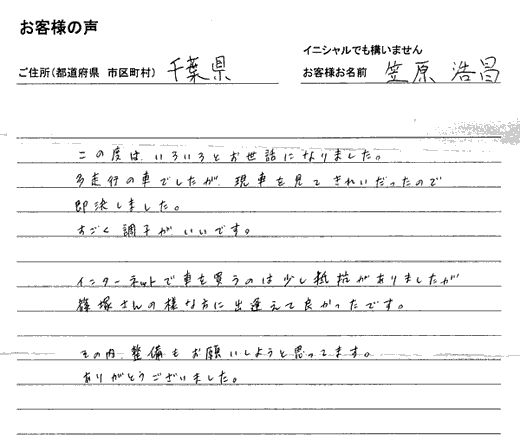 お客様の声
イニシャルでも構いません
ご住所(都道府県 市区町村) 千葉県 お客様お名前 笠原 浩昌
この度は、いろいろとお世話になりました。
多走行の車でしたが、現車を見てきれいだったので
即決しました。
すごく調子がいいです。
インターネットで車を買うのは少し抵抗がありましたが
篠塚さんの様な方に出逢えて良かったです。
その内、整備もお願いしようと思ってます。
ありがとうございました。